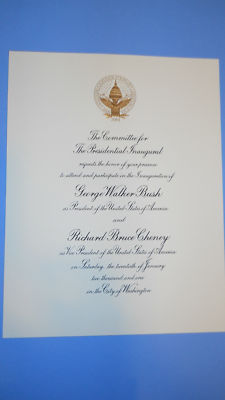 The Committee for
The Presidential Inaugural
requests the honor of your presence
to attend and participate in the Inauguration of
George Walker Bush
as President of the United States of America
and
Richard Bruce Cheney
as Vice President of the United States of America
on Saturday, the twentieth of January
two thousand and one
in the City of Washington